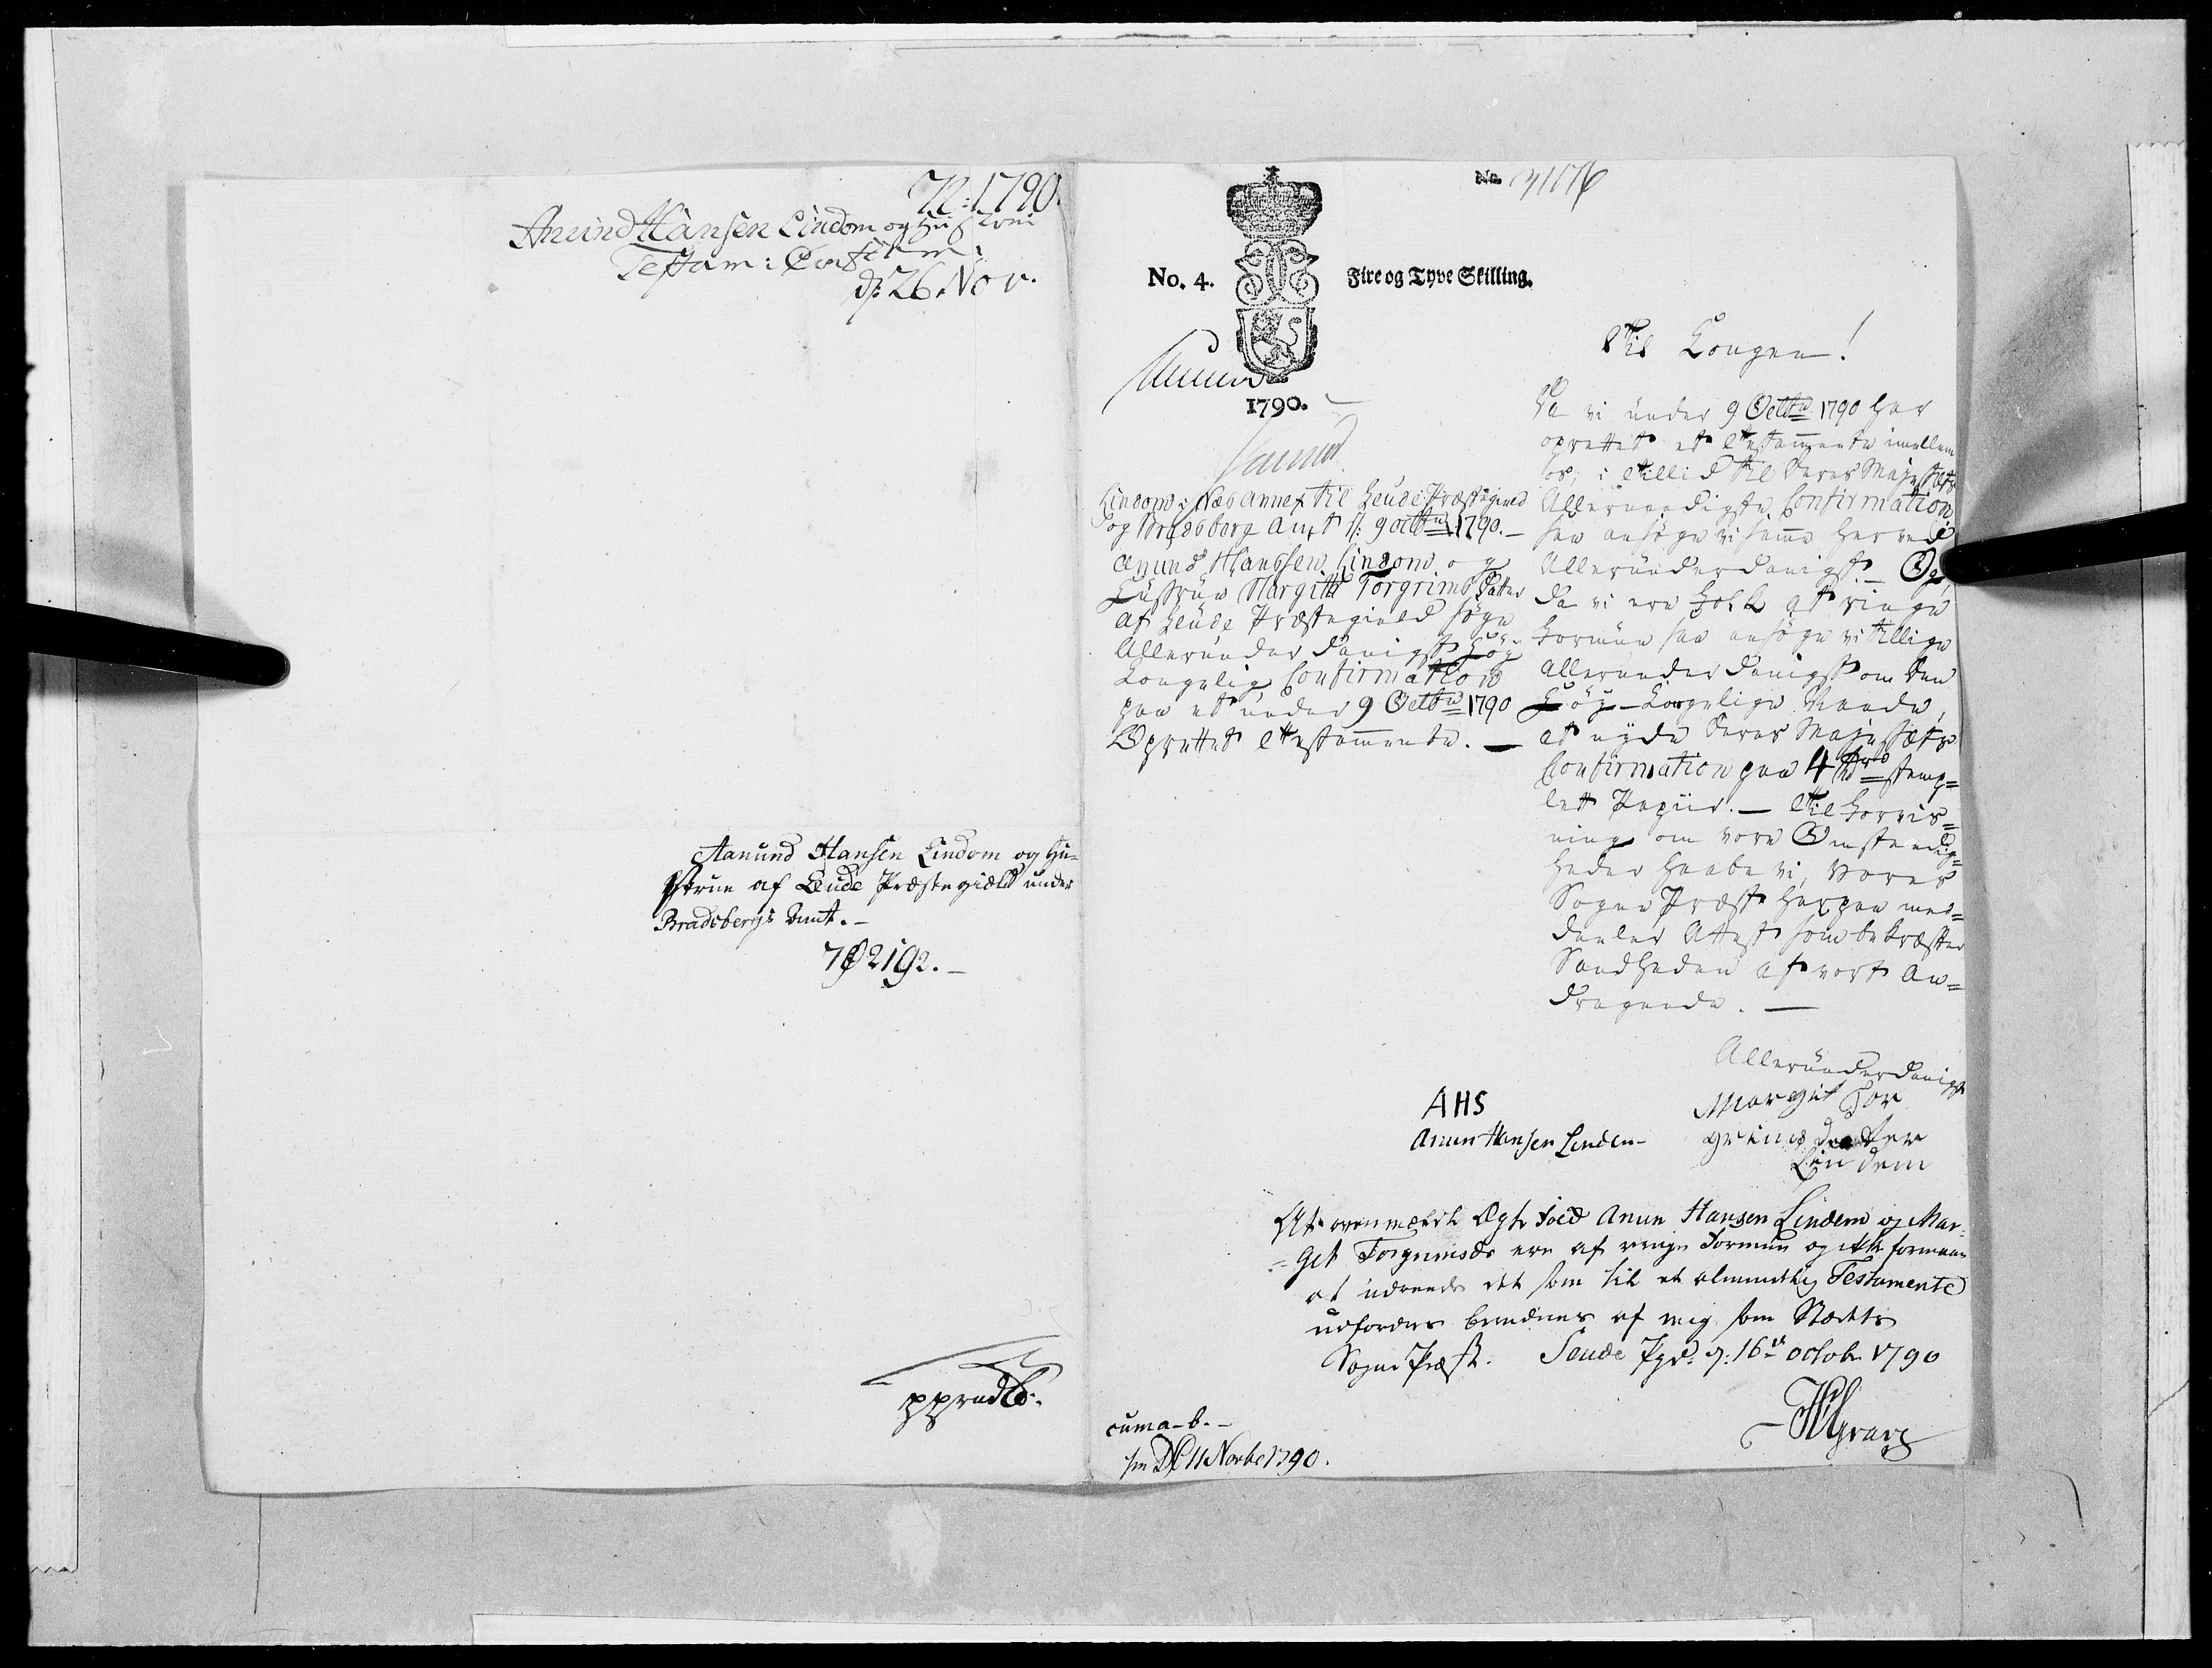 72: 1790.
Anund Hansen Lindom og Hustrue
Testam: Confirm:
d: 26. Nov.
Aanund Hansen Lindom og Hu-
strue af Seude Præstegield under
Bradsbergs Amt. -
No. 4.
Fire og Tyve Skilling.
1790.
No.
Lindom i Næs Annex til Seude Præstegield
og Bradsberg Amt d: 9 Octbr 1790. -
Anund Hanssen Lindom og
Hustrue Margith Torgrims Datter
af Seude Præstegield søge
Allerunderdanigst Høy-
Kongelig Confirmation
paa et under 9 Octbr 1790
Oprettet Testamente. -
Til Kongen!
Da vi under 9 Octbr 1790 har
oprettet et Testamente imellem
os, i Tillid til Deres Majestæts
Allernaadigste Confirmation
saa ansøge vi samme herved
Allerunderdanigst - Og
da vi ere Folk af ringe
Formue saa ansøge vi tillige
allerunderdanigst om den
Høy-Kongelige Naade,
at nyde Deres Majestæts
Confirmation paa 4 stemp=
let Papiir. - Til Forvis=
ning om vore Omstændig=
heder haabe vi, Vores
Sogne Præst herpaa med=
deeler Attest som bekræfter
Sandheden af vort An=
dragende. -
Allerunderdanigst
AHS
Anun Hansen Linden
Margit Tor
grims Datter
Lindem
At ovenmelte Ægte Folk Anun Hansen Lindem og Mar-
=git Torgrimsdr ere af ringe Formue og ikke formaaer
at udreede det som til et almindelig Testamente
udfordres bevidnes af mig som Stædets
Sogne Præst. Seude Pgd: d: 16d octobr 1790
HGrave
cum a-b. -
11 Novbr 1790.